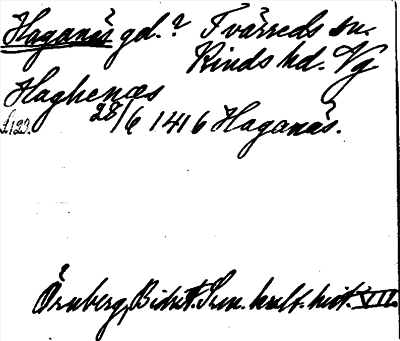 Haganäs gd.? Tvärreds sn.
Kinds hd. Vg
Haghenæs
s. 123. 28/6 1416 Haganäs.
Örnberg, Bidr. t. Sv. kult. hist. VII.